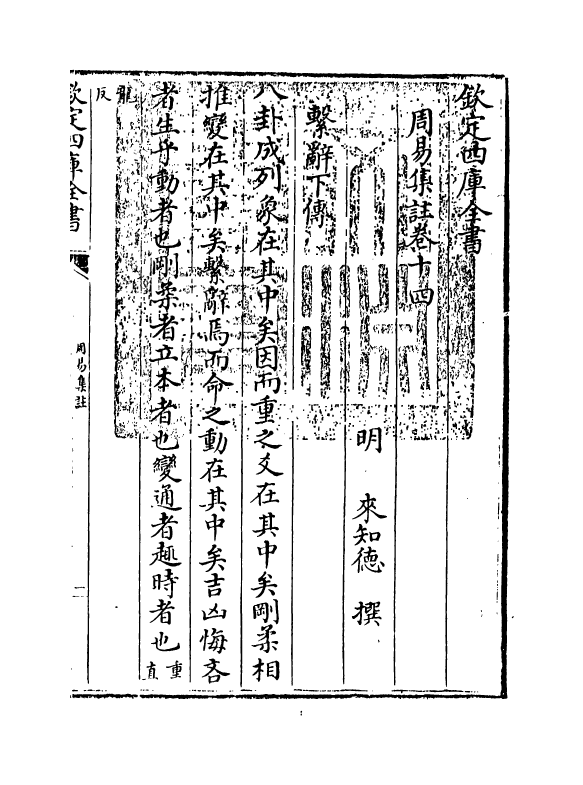 欽定四庫全書
周易集註卷十四
明　來知德　撰
繫辭下傳
八卦成列象在其中矣因而重之爻在其中矣剛柔相
推變在其中矣繫辭焉而命之動在其中矣吉凶悔吝
者生乎動者也剛柔者立本者也變通者趣時者也重直
龍反
欽定四庫全書
周易集註